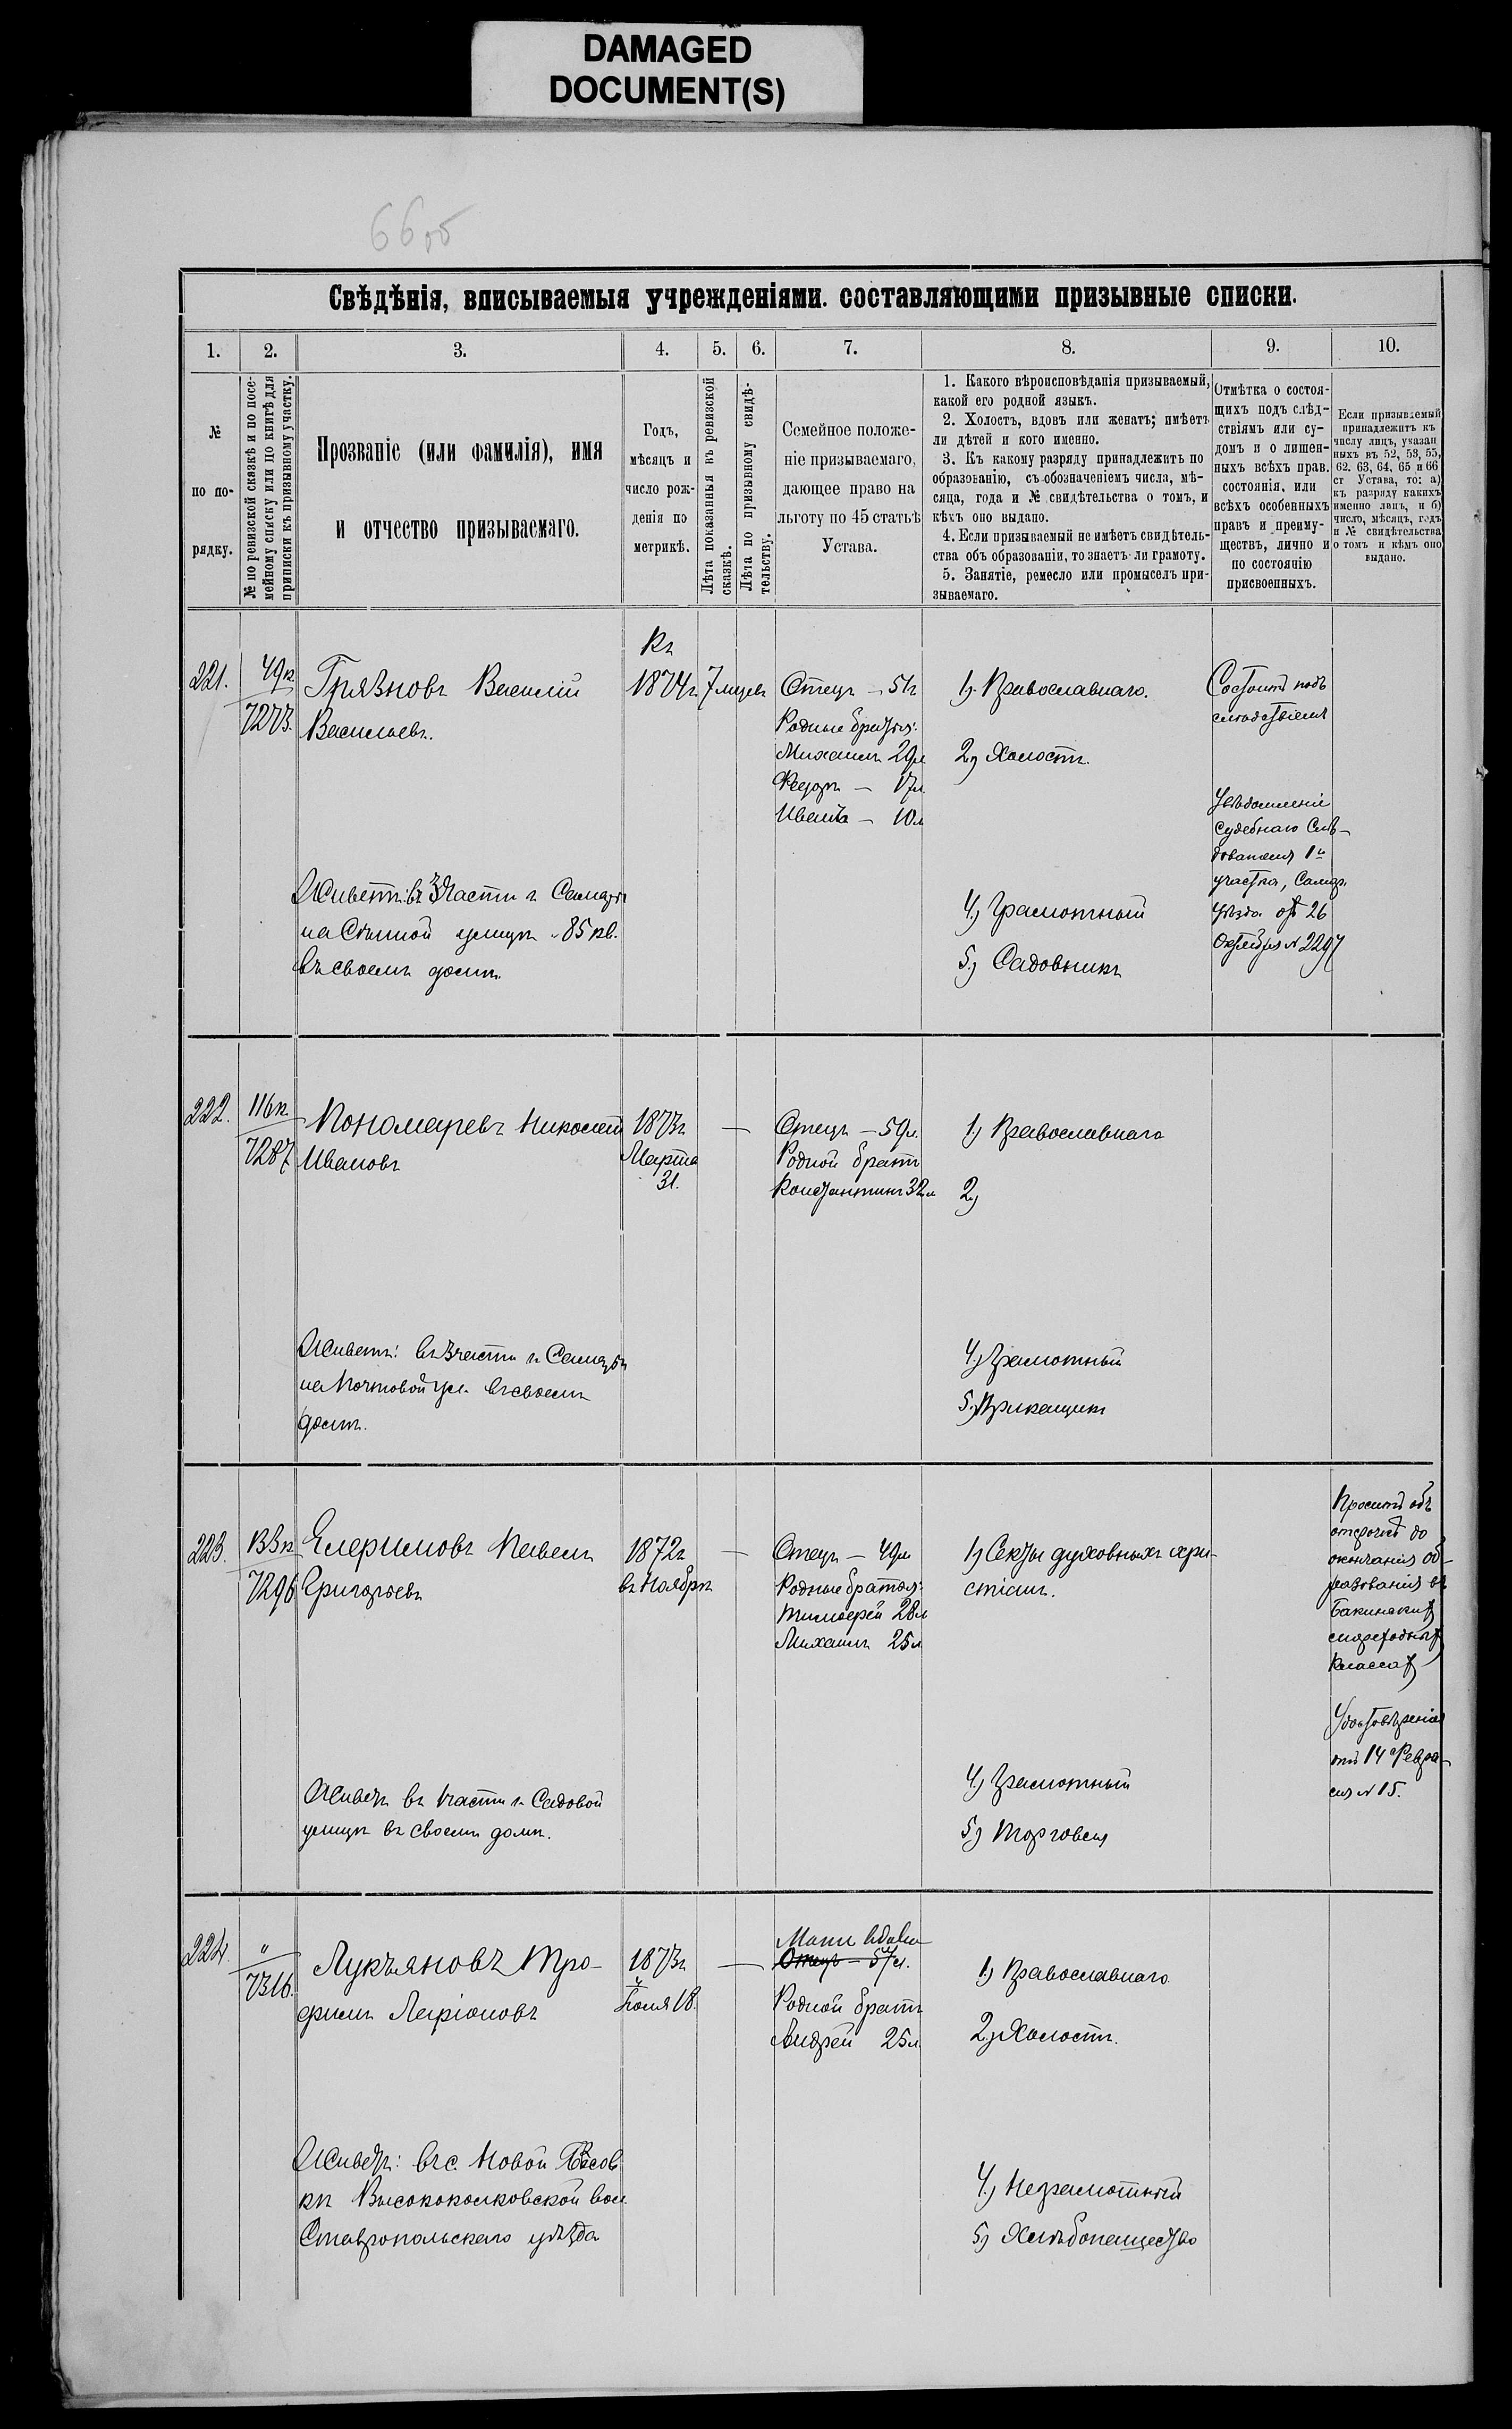 DAMAGED
DOCUMENT(S)
66 об
Свѣдѣнія, вписываемыя учрежденіями. составляющими призывные списки.
1. 2. 3. 4. 5. 6. 7. 8. 9. 10.
№
по по-
рядку.
№ по ревизской сказкѣ и по посе-
мейному списку или по книгѣ для
приписки къ призывному участку.
Прозваніе (или фамилія), имя
и отчество призываемаго.
Годъ,
мѣсяцъ и
число рож-
денія по
метрикѣ.
Лѣта показанныя въ ревизской
сказкѣ.
Лѣта по призывному свидѣ-
тельству.
Семейное положе-
ніе призываемаго,
дающее право на
льготу по 45 статьѣ
Устава.
1. Какого вѣроисповѣданія призываемый,
какой его родной языкъ.
2. Холостъ, вдовъ или женатъ; имѣетъ
ли дѣтей и кого именно.
3. Къ какому разряду принадлежитъ по
образованію, съ обозначеніемъ числа, мѣ-
сяца, года и № свидѣтельства о томъ, и
кѣхъ оно выдано.
4. Если призываемый не имѣетъ свидѣтель-
ства объ образованіи, то знаетъ-ли грамоту.
5. Занятіе, ремесло или промыселъ при-
зываемаго.
Отмѣтка о состоя-
щихъ подъ слѣд-
ствіямъ или су-
домъ и о лишен-
ныхъ всѣхъ прав.
состоянія, или
всѣхъ особенныхъ
правъ и преиму-
ществъ, лично и
по состоянію
присвоенныхъ.
Если призываемый
принадлежитъ къ
числу лицъ, указан
ныхъ въ 52, 53, 55,
62. 63, 64, 65 и 66
ст Устава, то: а)
къ разряду какихъ
именно лицъ, и б)
число, мѣсяцъ, годъ
и № свидѣтельства
о томъ и кѣмъ оно
выдано.
221.
49к
7273.
Грязновъ Василій
Васильевъ.
Къ
1874г 7 мцевъ
Отецъ – 51г
Родные братья:
Михаилъ 29л
Федоръ – 17л.
Иванъ – 10л
1) Православнаго.
2) Холостъ.
4) Грамотный
5) Садовникъ
Состоитъ подъ
слѣдствіемъ
Увѣдомленіе
Судебнаго Слѣ-
дователя 1го
участка, Самар.
уѣзда отъ 26
Октября № 2297
Живетъ: въ 3 части г Самары
на Сѣнной улицѣ 85 кв.
въ своемъ домѣ.
222.
116к.
7287
Пономаревъ Николай
Ивановъ
1873г
Марта
31.
—
Отецъ – 59л.
Родной братъ
Константинъ 32л
1) Православнаго
2)
4) Грамотный
5) Прикащикъ
Живетъ: въ 3 части г Самары
на Почтовой ул. въ своемъ
домѣ.
223.
7296
Павелъ
Григорьевъ
1872г
въ Ноябрѣ
—
Отецъ – 49л
Родные братья:
Тимофей 28л
Михаилъ 25л
1) Секты духовныхъ хри-
стіанъ.
4) Грамотный
5) Торговля
Проситъ объ
отсрочкѣ до
окончанія об-
разованія въ
Бакинскихъ
мореходныхъ
классахъ
Удостовѣреніе
отъ 14 Февра-
ля № 15.
Живетъ въ 1 части г. Садовой
улицѣ въ своемъ домѣ.
224.
"
7316.
Лукъяновъ Тро-
фимъ Ларіоновъ
1873г
Іюля 18.
—
Мать вдова
Отецъ – 57л.
Родной братъ
Андрей 25л.
1) Православнаго
2) Холостъ.
4) Неграмотный
5) Хлѣбопашество
Живетъ: въ с. Новой
кѣ Высококолковской вол.
Ставропольскаго уѣзда